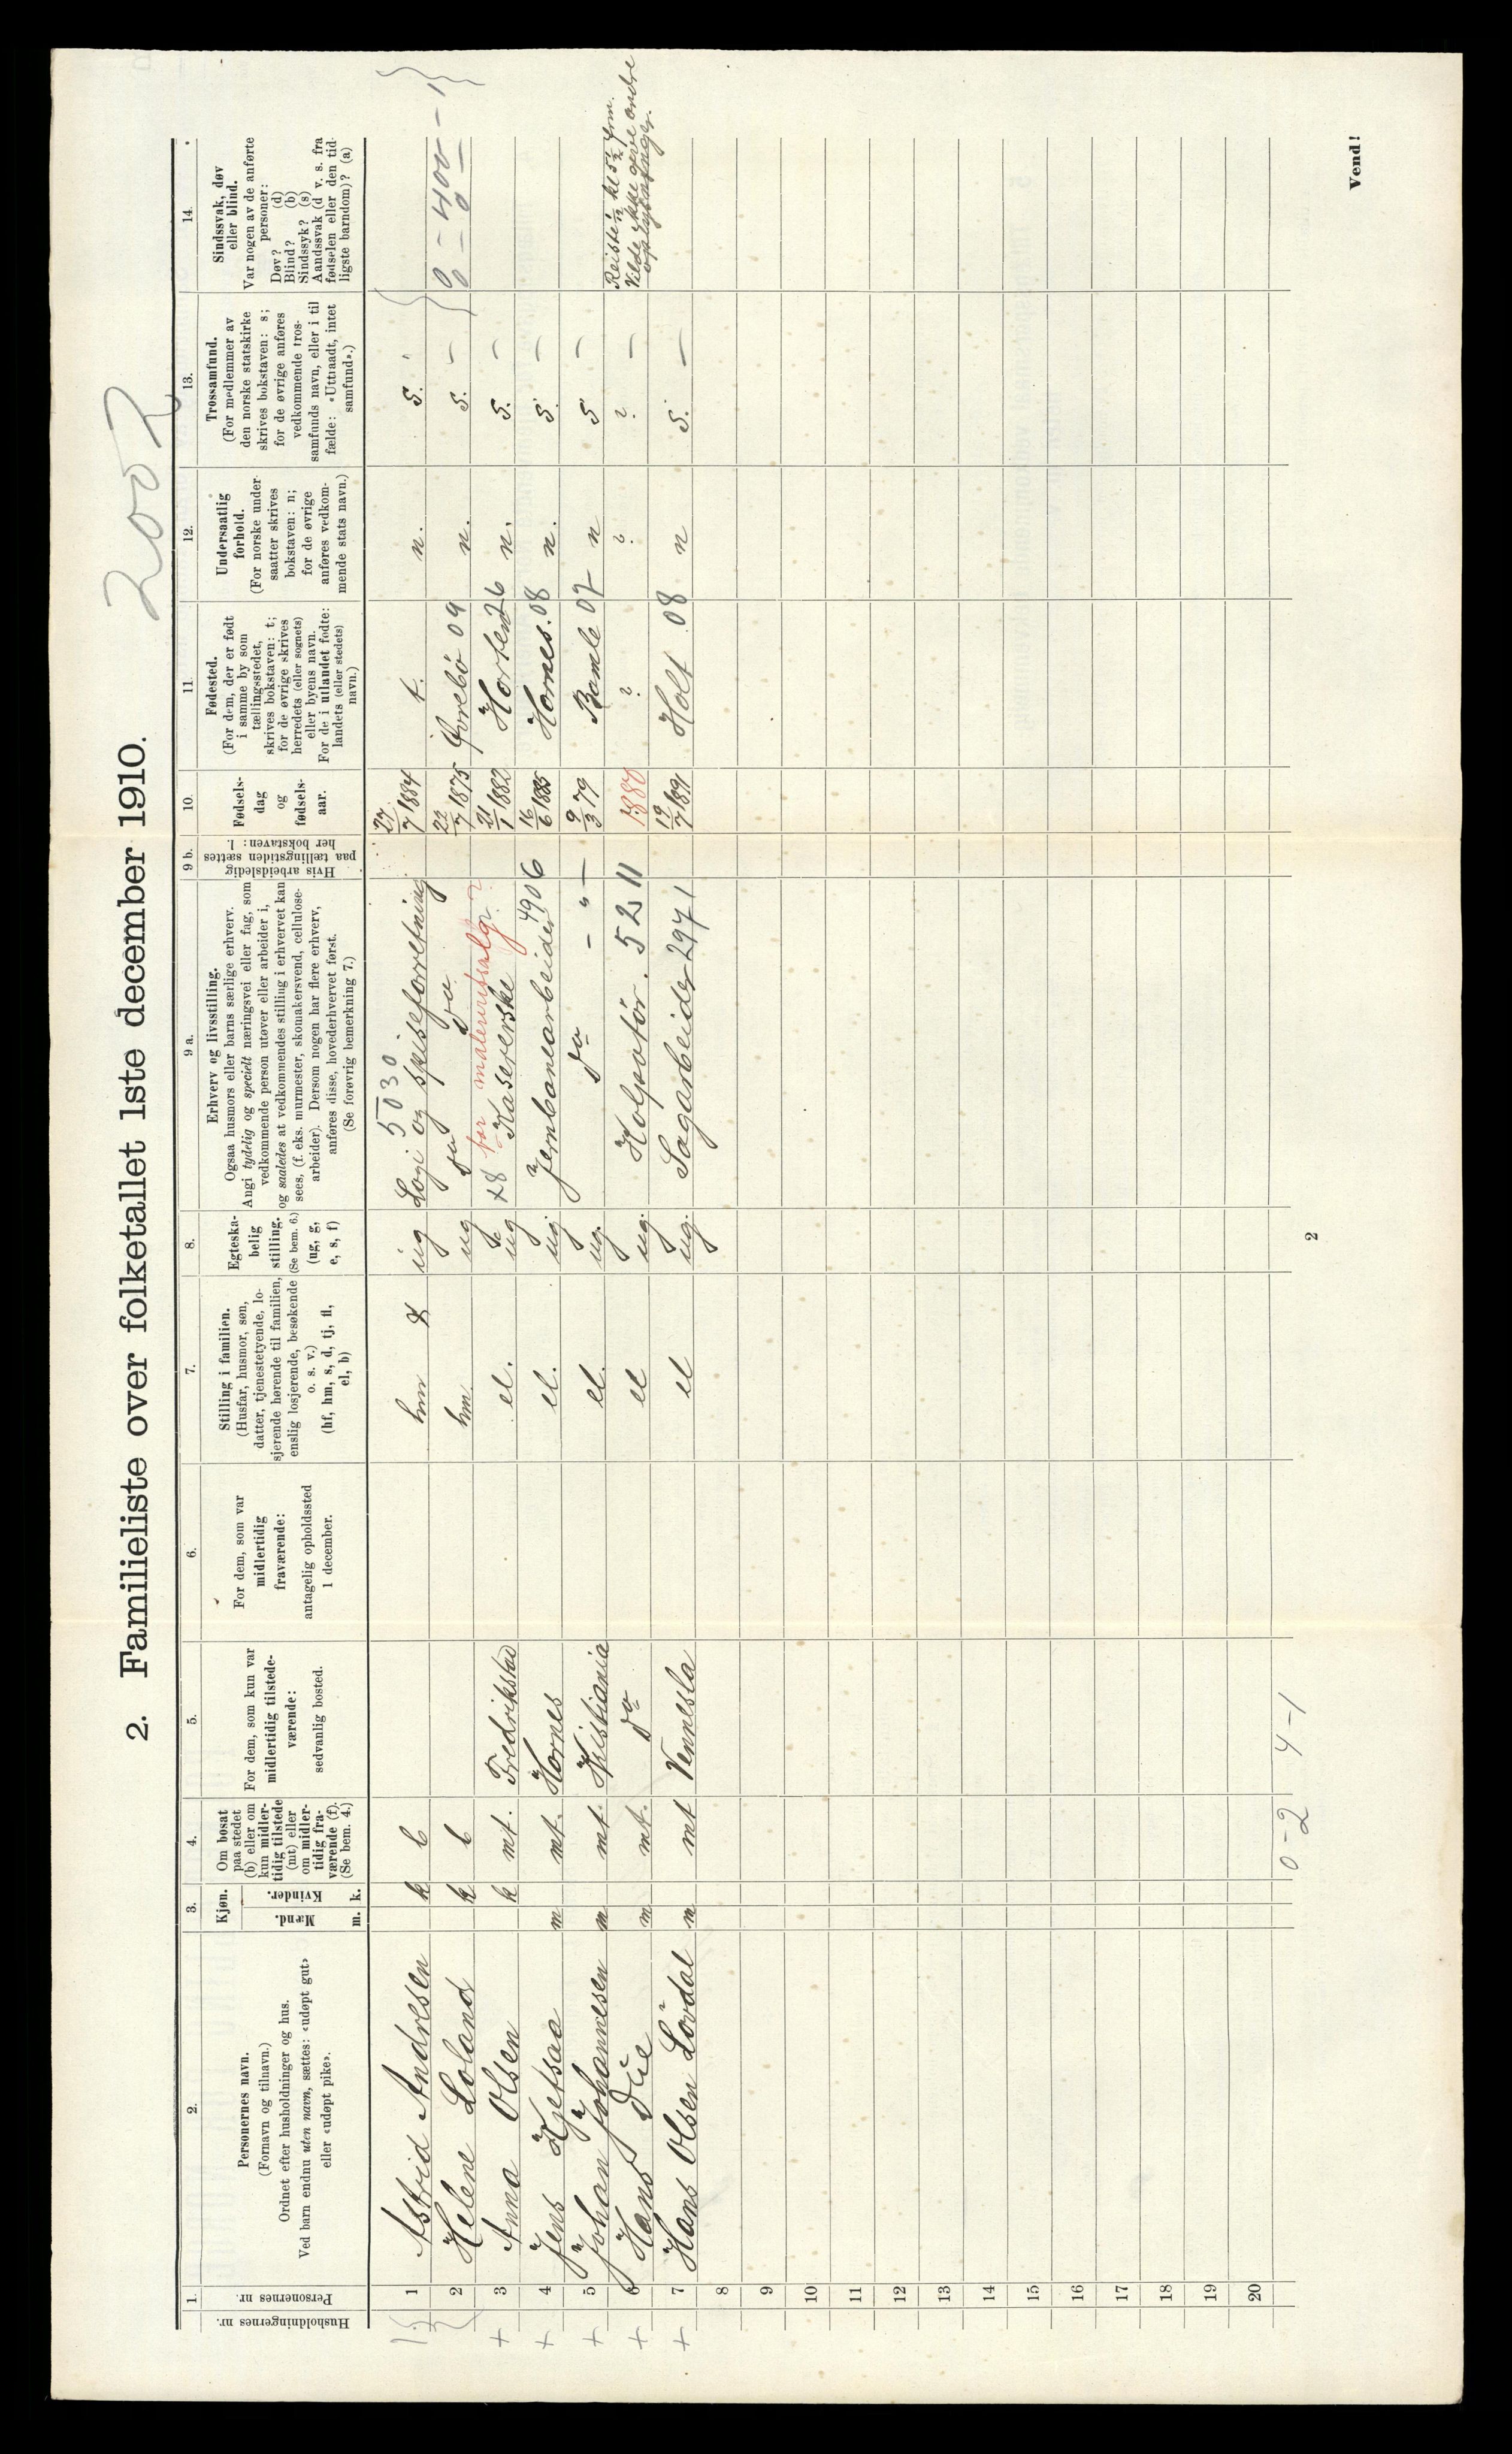 2002
2. Familieliste over folketallet 1ste december 1910.
1.
Husholdningernes nr.
Personernes nr.
2.
Personernes navn.
(Fornavn og tilnavn.)
Ordnet efter husholdninger og hus.
Ved barn endnu uten navn, sættes: «udøpt gut»
eller «udøpt pike».
3.
Kjøn.
Mænd.
Kvinder.
m. k.
4.
Om bosat
paa stedet
(b) eller om
kun midler-
tidig tilstede
(mt) eller
om midler-
tidig fra-
værende (f).
(Se bem. 4.)
5.
For dem, som kun var
midlertidig tilstede-
værende:
sedvanlig bosted.
6.
For dem, som var
midlertidig
fraværende:
antagelig opholdssted
1 december.
7.
Stilling i familien.
(Husfar, husmor, søn,
datter, tjenestetyende, lo-
sjerende hørende til familien,
enslig losjerende, besøkende
o. s. v.)
(hf, hm, s, d, tj, fl,
el, b)
8.
Egteska-
belig
stilling.
(Se bem. 6.)
(ug, g,
e, s, f)
9 a.
Erhverv og livsstilling.
Ogsaa husmors eller barns særlige erhverv.
Angi tydelig og specielt næringsvei eller fag, som
vedkommende person utøver eller arbeider i,
og saaledes at vedkommendes stilling i erhvervet kan
sees, (f. eks. murmester, skomakersvend, cellulose-
arbeider). Dersom nogen har flere erhverv,
anføres disse, hovederhvervet først.
(Se forøvrig bemerkning 7.)
9 b.
Hvis arbeidsledig
paa tællingstiden sættes
her bokstaven: l.
10.
Fødsels-
dag
og
fødsels-
aar.
11.
Fødested.
(For dem, der er født
i samme by som
tællingsstedet,
skrives bokstaven: t;
for de øvrige skrives
herredets (eller sognets)
eller byens navn.
For de i utlandet fødte:
landets (eller stedets)
navn.)
12.
Undersaatlig
forhold.
(For norske under-
saatter skrives
bokstaven: n;
for de øvrige
anføres vedkom-
mende stats navn.)
13.
Trossamfund.
(For medlemmer av
den norske statskirke
skrives bokstaven: s;
for de øvrige anføres
vedkommende tros-
samfunds navn, eller i til
fælde: «Uttraadt, intet
samfund».)
14.
Sindssvak, døv
eller blind.
Var nogen av de anførte
personer:
Døv? (d)
Blind? (b)
Sindssyk? (s)
Aandssvak (d. v. s. fra
fødselen eller den tid-
ligste barndom)? (a)
5030
1 Astrid Andresen k b hm ug Logi og spiseforretning 27/7 1884 t. n. s.
2 Helene Loland k b hm ug do do 22/7 1875 Øvrebö 09 n. s. —
for malerirrisalg?
+ 3 Anna Olsen k mt. Fredrikstad el. ug Kasererske 21/1 1882 Horten 26 n. s. —
+ 4 Jens Kjetsaa m mt. Hornes el. ug. Jernbanearbeider 4906 16/6 1885 Hornes. 08 n. s. —
+ 5 Johan Johannesen m mt. Kristiania el. ug. do - " - 9/3 79 Bamle 07 n s —
+ 6 Hans Due m mt. do el ug. Kolpotör. 5211 1880 ? ? ? — Reiste 1/12 kl 5 1/2 frm.
Vilde ikke give andre
oplysninger.
+ 7 Hans Olsen Lövdal m mt Vennesla el ug. Sagarbeider 2971 19/7 1891 Holt 08 n s. —
8
9
10
11
12
13
14
15
16
17
18
19
20
0-2 4-1
2
Vend!